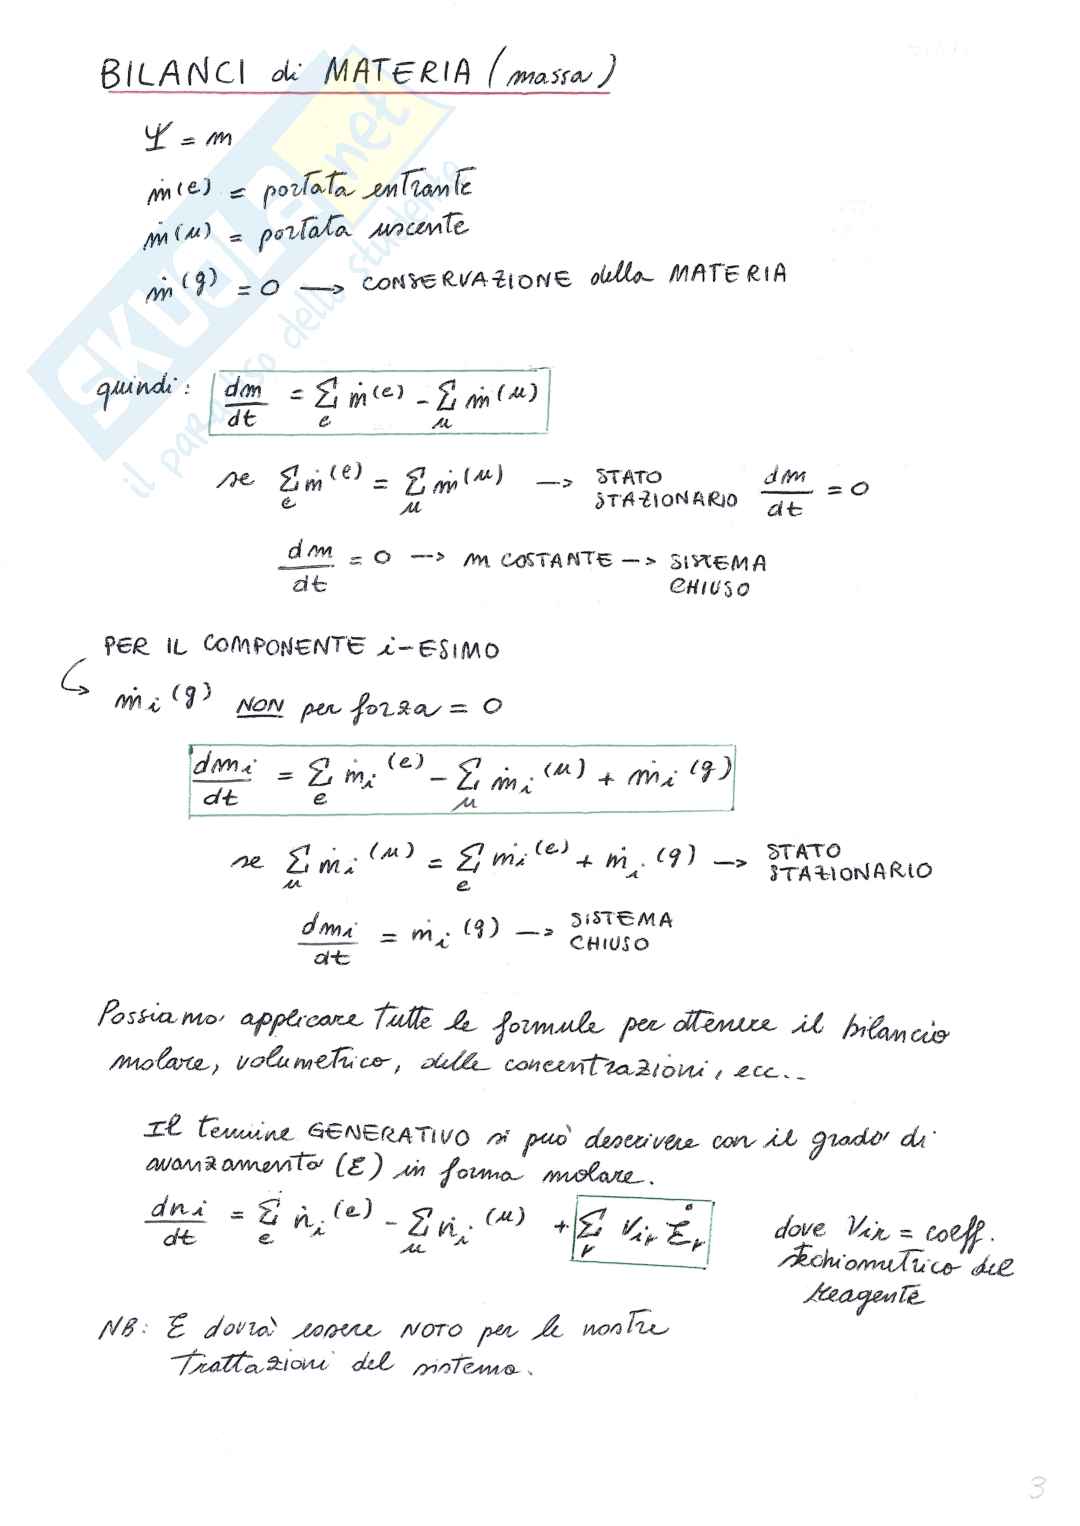 BILANCI di MATERIA (massa)
Ψ = m
ṁ(e) = portata entrante
ṁ(u) = portata uscente
ṁ(g) = 0 → CONSERVAZIONE della MATERIA
quindi: dm/dt = Σ_e ṁ(e) - Σ_u ṁ(u)
se Σ_e ṁ(e) = Σ_u ṁ(u) → STATO STAZIONARIO dm/dt = 0
dm/dt = 0 → m COSTANTE → SISTEMA CHIUSO
PER IL COMPONENTE i-ESIMO
ṁ_i(g) NON per forza = 0
dm_i/dt = Σ_e ṁ_i(e) - Σ_u ṁ_i(u) + ṁ_i(g)
se Σ_u ṁ_i(u) = Σ_e ṁ_i(e) + ṁ_i(g) → STATO STAZIONARIO
dm_i/dt = ṁ_i(g) → SISTEMA CHIUSO
Possiamo applicare tutte le formule per ottenere il bilancio
molare, volumetrico, delle concentrazioni, ecc...
Il termine GENERATIVO si può descrivere con il grado di
avanzamento (ε) in forma molare.
dn_i/dt = Σ_e ṅ_i(e) - Σ_u ṅ_i(u) + Σ_r ν_ir ε̇_r
dove ν_ir = coeff.
stechiometrico del
reagente
NB: ε dovrà essere NOTO per le nostre
trattazioni del sistema.
3
SKUOLA.net
il paradiso dello studente